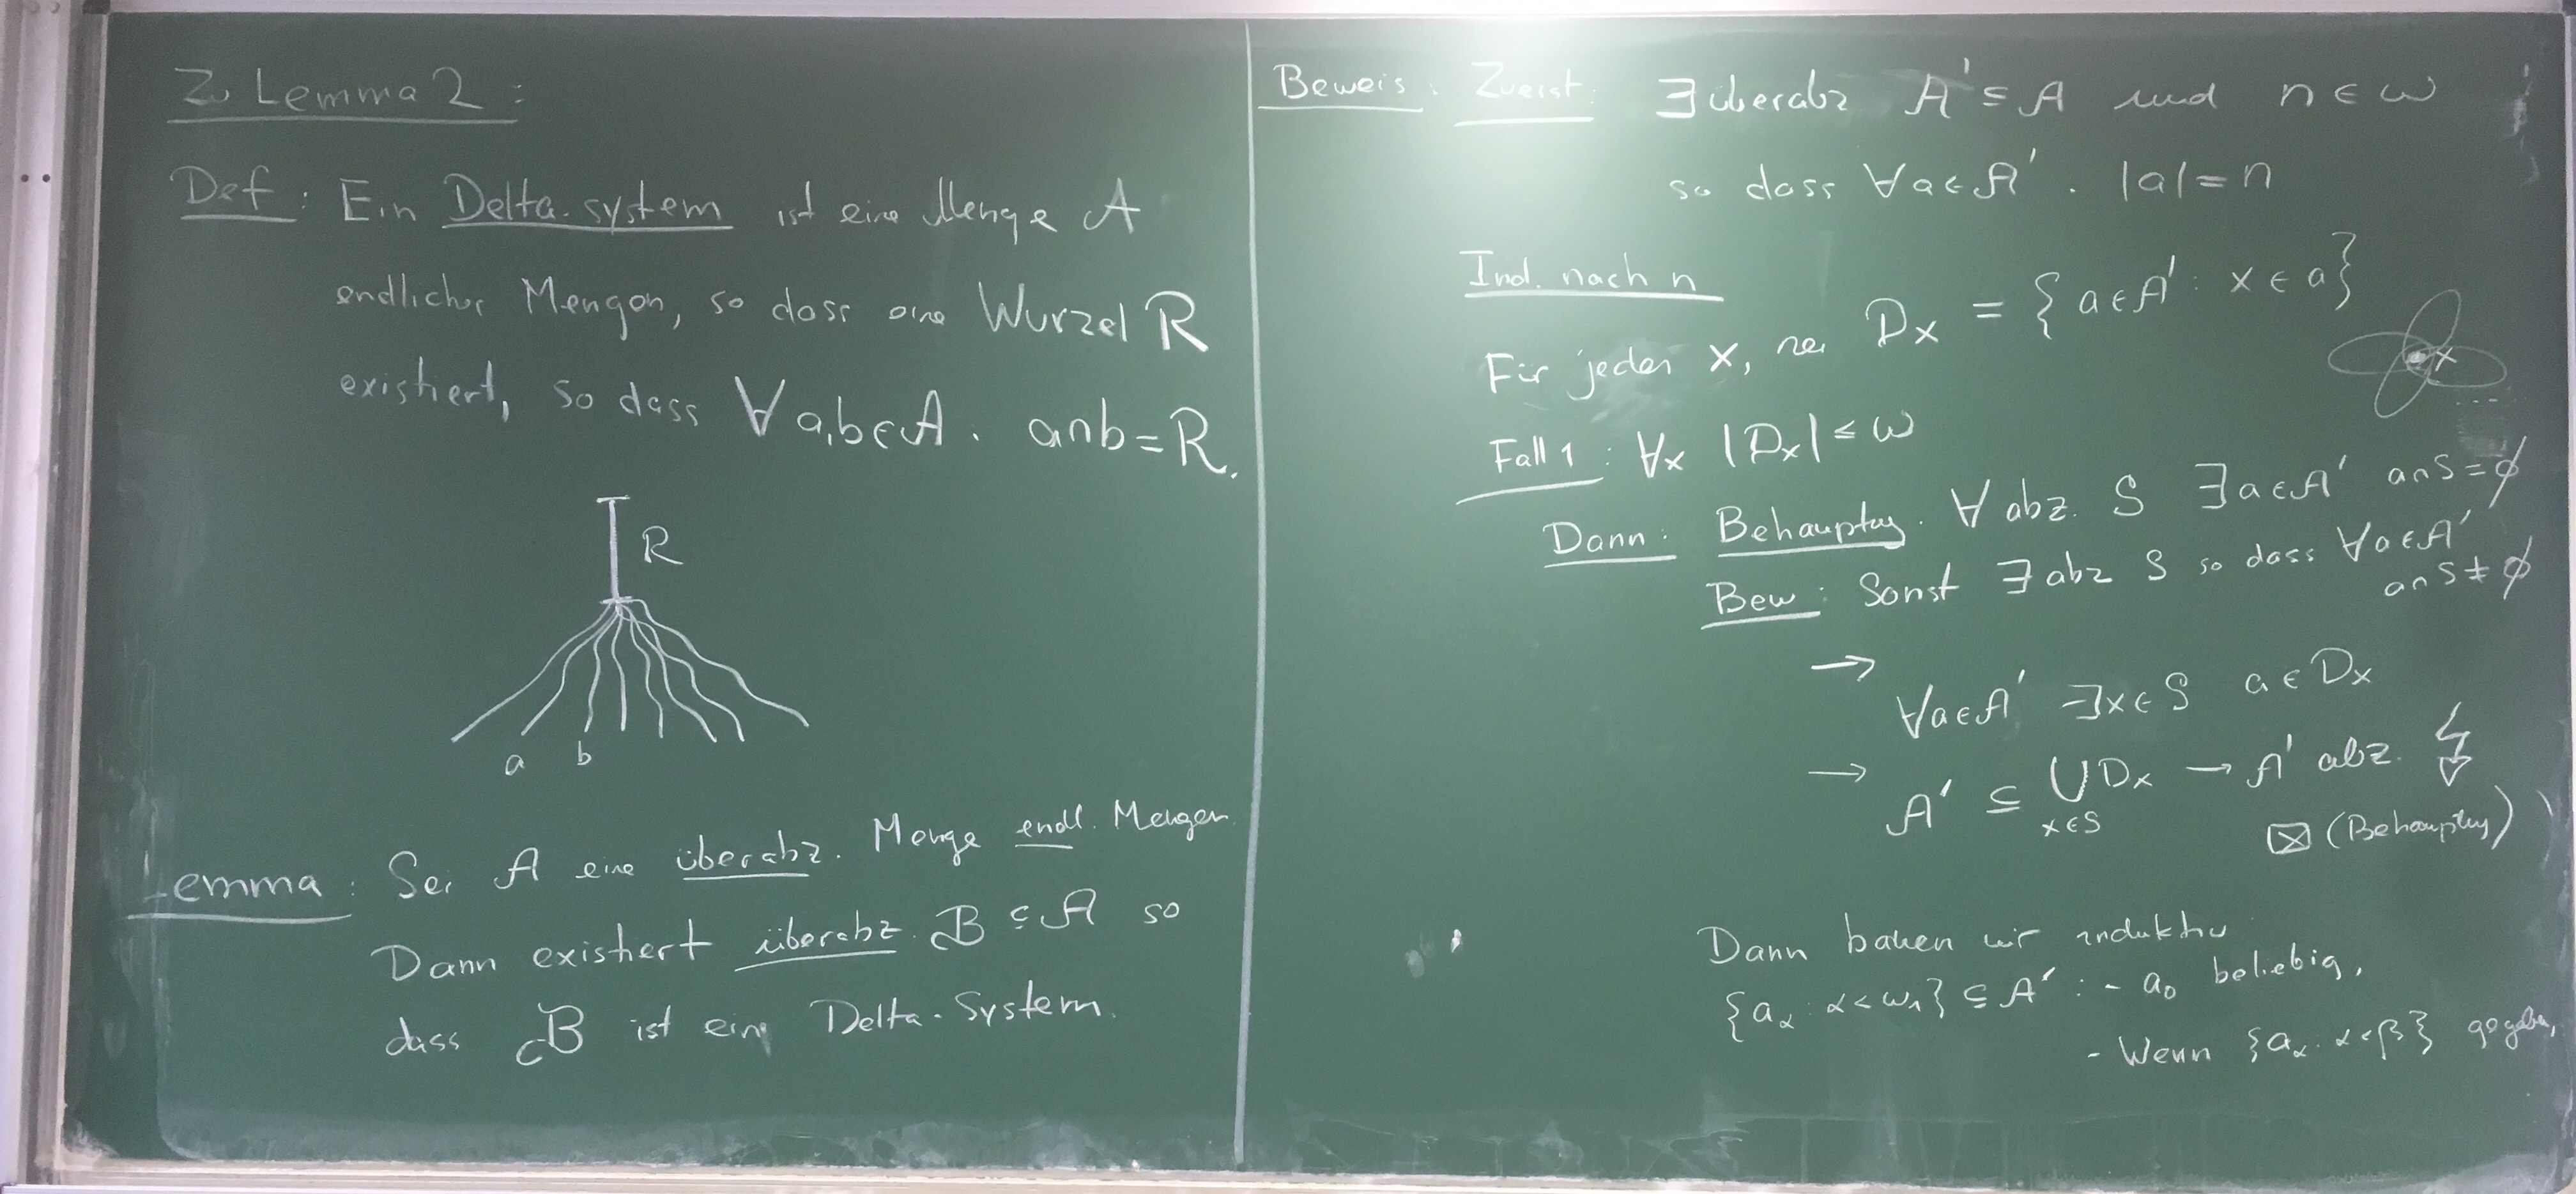 Zu Lemma 2:
Def: Ein Delta-system ist eine Menge A
endlicher Mengen, so dass eine Wurzel R
existiert, so dass ∀ a,b ∈ A. a∩b = R.
R
a b
Lemma: Sei A eine überabz. Menge endl. Mengen
Dann existiert überabz. B ⊆ A so
dass B ist ein Delta-System.
Beweis: Zuerst: ∃ überabz A' ⊆ A und n ∈ ω
so dass ∀a∈A'. |a| = n
Ind. nach n
Für jeden x, sei D_x = {a∈A': x ∈ a}
x
...
Fall 1: ∀x |D_x| ≤ ω
Dann: Behauptung. ∀ abz. S ∃a∈A' a∩S = ∅
Bew: Sonst ∃ abz S so dass ∀a∈A'
a∩S ≠ ∅
→ ∀a∈A' ∃x∈S a ∈ D_x
→ A' ⊆ ⋃_{x∈S} D_x → A' abz. ↯
☒ (Behauptung)
Dann bauen wir induktiv
{a_α: α<ω₁} ⊆ A': - a₀ beliebig,
- Wenn {a_α: α<β} gegeben,